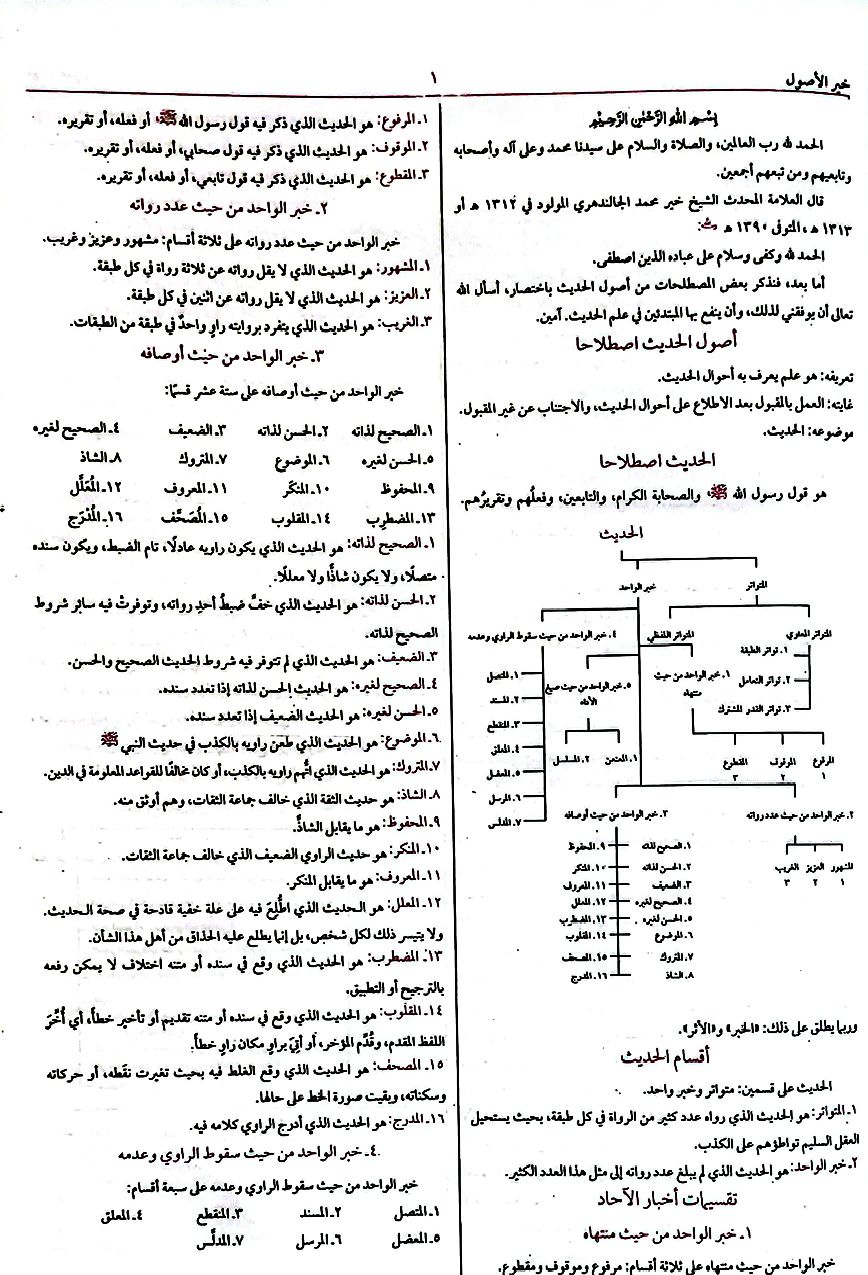 خير الأصول
١
بِسْمِ اللهِ الرَّحْمٰنِ الرَّحِيْمِ
الحمد لله رب العالمين، والصلاة والسلام على سيدنا محمد وعلى آله وأصحابه
وتابعيهم ومن تبعهم أجمعين.
قال العلامة المحدث الشيخ خير محمد الجالندهري المولود في ١٣١٢ هـ أو
١٣١٣ هـ، المتوفى ١٣٩٠ هـ
الحمد لله وكفى وسلام على عباده الذين اصطفى.
أما بعد، فنذكر بعض المصطلحات من أصول الحديث باختصار، أسأل الله
تعالى أن يوفقني لذلك، وأن ينفع بها المبتدئين في علم الحديث. آمين.
أصول الحديث اصطلاحا
تعريفه: هو علم يعرف به أحوال الحديث.
غايته: العمل بالمقبول بعد الاطلاع على أحوال الحديث، والاجتناب عن غير المقبول.
موضوعه: الحديث.
الحديث اصطلاحا
هو قول رسول الله ﷺ والصحابة الكرام، والتابعين، وفعلُهم وتقريرُهم.
الحديث
المتواتر
خبر الواحد
المتواتر المعنوي
المتواتر اللفظي
٤. خبر الواحد من حيث سقوط الراوي وعدمه
١. تواتر الطبقة
٢. تواتر التعامل
٣. تواتر القدر المشترك
١. خبر الواحد من حيث
منتهاه
٥. خبر الواحد من حيث صيغ
الأداء
١. المتصل
٢. المسند
٣. المنقطع
٤. المعلق
٥. المعضل
٦. المرسل
٧. المدلس
١. المعنعن
٢. المسلسل
المرفوع
١
الموقوف
٢
المقطوع
٣
٢. خبر الواحد من حيث عدد رواته
٣. خبر الواحد من حيث أوصافه
المشهور
١
العزيز
٢
الغريب
٣
١. الصحيح لذاته
٢. الحسن لذاته
٣. الضعيف
٤. الصحيح لغيره
٥. الحسن لغيره
٦. الموضوع
٧. المتروك
٨. الشاذ
٩. المحفوظ
١٠. المنكر
١١. المعروف
١٢. المعلل
١٣. المضطرب
١٤. المقلوب
١٥. المصحف
١٦. المدرج
وربما يطلق على ذلك: «الخبر» و«الأثر».
أقسام الحديث
الحديث على قسمين: متواتر وخبر واحد.
١. المتواتر: هو الحديث الذي رواه عدد كثير من الرواة في كل طبقة، بحيث يستحيل
العقل السليم تواطؤهم على الكذب.
٢. خبر الواحد: هو الحديث الذي لم يبلغ عدد رواته إلى مثل هذا العدد الكثير.
تقسيمات أخبار الآحاد
١. خبر الواحد من حيث منتهاه
خبر الواحد من حيث منتهاه على ثلاثة أقسام: مرفوع وموقوف ومقطوع.
١. المرفوع: هو الحديث الذي ذكر فيه قول رسول الله ﷺ أو فعله، أو تقريره.
٢. الموقوف: هو الحديث الذي ذكر فيه قول صحابي، أو فعله، أو تقريره.
٣. المقطوع: هو الحديث الذي ذكر فيه قول تابعي، أو فعله، أو تقريره.
٢. خبر الواحد من حيث عدد رواته
خبر الواحد من حيث عدد رواته على ثلاثة أقسام: مشهور وعزيز وغريب.
١. المشهور: هو الحديث الذي لا يقل رواته عن ثلاثة رواة في كل طبقة.
٢. العزيز: هو الحديث الذي لا يقل رواته عن اثنين في كل طبقة.
٣. الغريب: هو الحديث الذي يتفرد بروايته راوٍ واحدٌ في طبقة من الطبقات.
٣. خبر الواحد من حيث أوصافه
خبر الواحد من حيث أوصافه على ستة عشر قسمًا:
١. الصحيح لذاته ٢. الحسن لذاته ٣. الضعيف ٤. الصحيح لغيره
٥. الحسن لغيره ٦. الموضوع ٧. المتروك ٨. الشاذ
٩. المحفوظ ١٠. المنكَر ١١. المعروف ١٢. المُعَلَّل
١٣. المضطرِب ١٤. المقلوب ١٥. المُصَحَّف ١٦. المُدْرَج
١. الصحيح لذاته: هو الحديث الذي يكون راويه عادلًا، تام الضبط، ويكون سنده
متصلًا، ولا يكون شاذًّا ولا معللًا.
٢. الحسن لذاته: هو الحديث الذي خفَّ ضبطُ أحدِ رواته، وتوفرتْ فيه سائر شروط
الصحيح لذاته.
٣. الضعيف: هو الحديث الذي لم تتوفر فيه شروط الحديث الصحيح والحسن.
٤. الصحيح لغيره: هو الحديث الحسن لذاته إذا تعدد سنده.
٥. الحسن لغيره: هو الحديث الضعيف إذا تعدد سنده.
٦. الموضوع: هو الحديث الذي طعن راويه بالكذب في حديث النبي ﷺ
٧. المتروك: هو الحديث الذي اتُّهم راويه بالكذب، أو كان مخالفًا للقواعد المعلومة في الدين.
٨. الشاذ: هو حديث الثقة الذي خالف جماعة الثقات، وهم أوثق منه.
٩. المحفوظ: هو ما يقابل الشاذَّ.
١٠. المنكر: هو حديث الراوي الضعيف الذي خالف جماعة الثقات.
١١. المعروف: هو ما يقابل المنكر.
١٢. المعلل: هو الحديث الذي اطُّلِعَ فيه على علة خفية قادحة في صحة الحديث.
ولا يتيسر ذلك لكل شخص، بل إنما يطلع عليه الحذاق من أهل هذا الشأن.
١٣. المضطرب: هو الحديث الذي وقع في سنده أو متنه اختلاف لا يمكن رفعه
بالترجيح أو التطبيق.
١٤. المقلوب: هو الحديث الذي وقع في سنده أو متنه تقديم أو تأخير خطأً، أي أُخِّرَ
اللفظ المقدم، وقُدِّم المؤخر، أو أُتِيَ براوٍ مكان راوٍ خطأً.
١٥. المصحف: هو الحديث الذي وقع الغلط فيه بحيث تغيرت نقَطه، أو حركاته
وسكناته، وبقيت صورة الخط على حالها.
١٦. المدرج: هو الحديث الذي أدرج الراوي كلامه فيه.
٤. خبر الواحد من حيث سقوط الراوي وعدمه
خبر الواحد من حيث سقوط الراوي وعدمه على سبعة أقسام:
١. المتصل ٢. المسند ٣. المنقطع ٤. المعلق
٥. المعضل ٦. المرسل ٧. المدلَّس